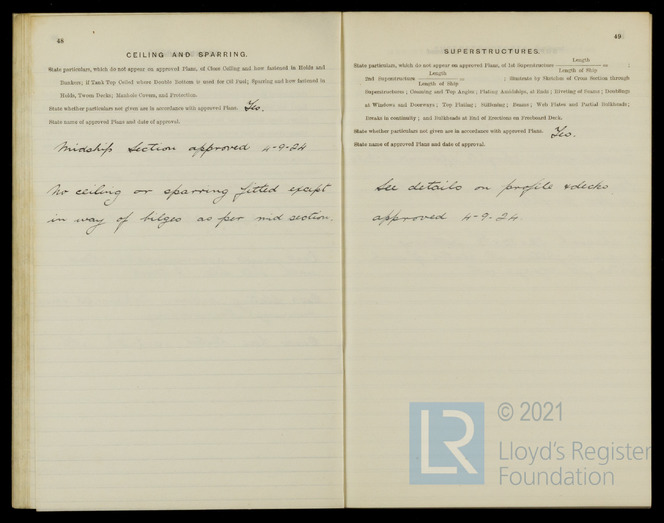 48
CEILING AND SPARRING.
State particulars, which do not appear on approved Plans, of Close Ceiling and how fastened in Holds and
Bunkers; if Tank Top Ceiled where Double Bottom is used for Oil Fuel; Sparring and how fastened in
Holds, Tween Decks; Manhole Covers, and Protection.
State whether particulars not given are in accordance with approved Plans. Yes.
State name of approved Plans and date of approval.
Midship Section approved 4-9-24
No ceiling or sparring fitted except
in way of bilges as per mid section.
49
SUPERSTRUCTURES.
State particulars, which do not appear on approved Plans, of 1st Superstructure Length / Length of Ship = ;
2nd Superstructure Length / Length of Ship = ; Students by Sketches of Cross Section through
Superstructures; Coaming and Top Angles; Plating Amidships, at Ends; Riveting of Beams; Doublings
at Windows and Doorways; Top Plating; Stiffening; Beams; Web Plates and Partial Bulkheads;
Breaks in continuity; and Bulkheads at End of Erections on Freeboard Deck.
State whether particulars not given are in accordance with approved Plans. Yes.
State name of approved Plans and date of approval.
See details on profile & decks
approved 4-9-24.
LR © 2021
Lloyd's Register
Foundation